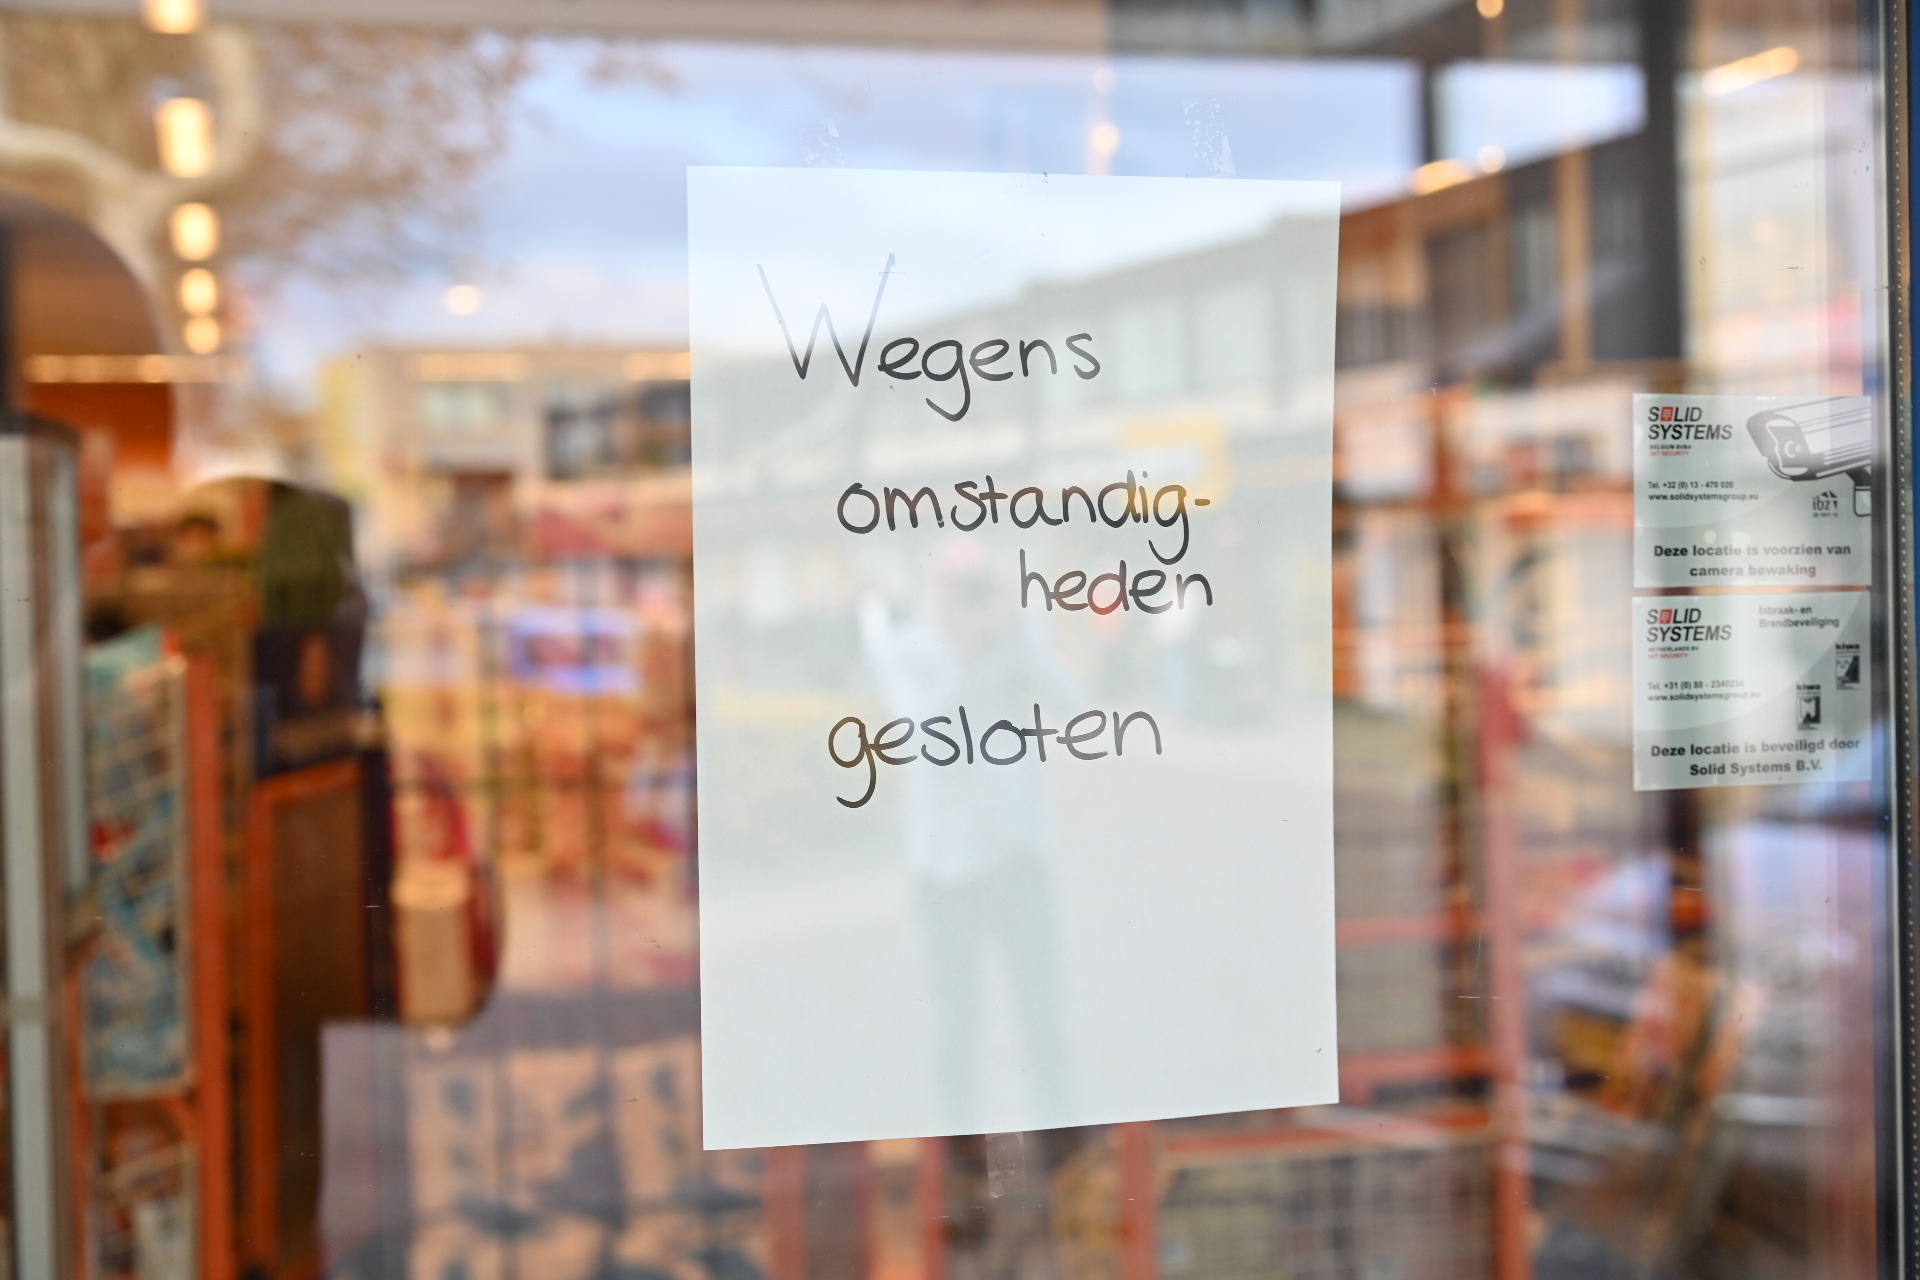 Wegens
omstandig-
heden
gesloten
SOLID
SYSTEMS
BELGIUM BVBA
24/7 SECURITY
Tel. +32 (0) 13 - 470 020
www.solidsystemsgroup.eu
ibz
Deze locatie is voorzien van
camera bewaking
SOLID
SYSTEMS
NETHERLANDS BV
24/7 SECURITY
Inbraak- en
Brandbeveiliging
kiwa
Tel. +31 (0) 88 - 2340234
www.solidsystemsgroup.eu
kiwa
Deze locatie is beveiligd door
Solid Systems B.V.